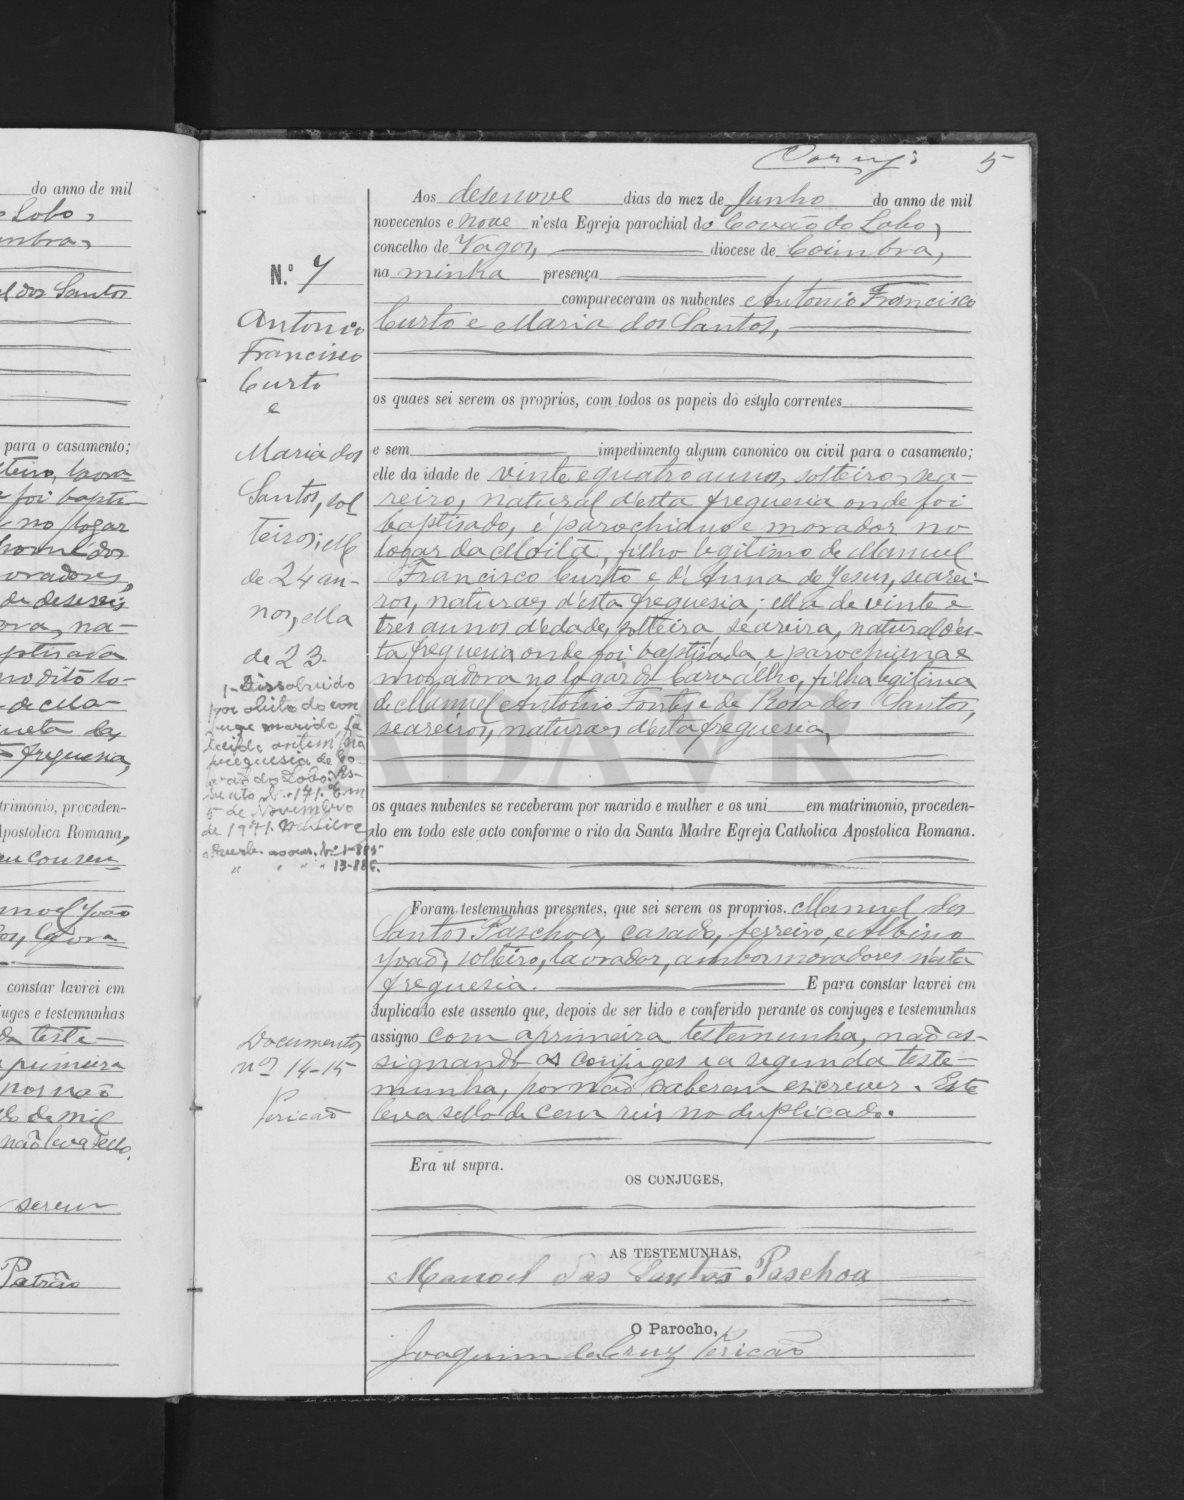 do anno de mil
Lobo,
el dos Santos
para o casamento;
foi bapti-
no logar
moradores,
de deseseis
na-
baptisada
no dito lo-
de Ma-
freguesia,
trimonio, proceden-
Apostolica Romana,
João
constar lavrei em
juges e testemunhas
da teste-
primeira
por não
de mil
não leva sello.
serem
Patrão
5
Aos desenove dias do mez de Junho do anno de mil
novecentos e nove n'esta Egreja parochial do Covão do Lobo,
concelho de Vagos, diocese de Coimbra,
na minha presença
compareceram os nubentes Antonio Francisco
Curto e Maria dos Santos,
os quaes sei serem os proprios, com todos os papeis do estylo correntes
e sem impedimento algum canonico ou civil para o casamento;
elle da idade de vinte e quatro annos, solteiro, sea-
reiro, natural d'esta freguesia onde foi
baptisado, é parochiano e morador no
logar da Moita, filho legitimo de Manuel
Francisco Curto e d'Anna de Jesus, searei-
ros, naturaes d'esta freguesia; ella de vinte e
tres annos d'edade, solteira, seareira, natural d'es-
ta freguesia onde foi baptisada e parochiana e
moradora no logar do Carvalho, filha legitima
de Manuel Antonio Fontes e de Rosa dos Santos,
seareiros, naturaes d'esta freguesia,
os quaes nubentes se receberam por marido e mulher e os uni em matrimonio, proceden-
do em todo este acto conforme o rito da Santa Madre Egreja Catholica Apostolica Romana.
Foram testemunhas presentes, que sei serem os proprios, Manuel dos
Santos Paschoa, casado, ferreiro, e Albino
João, solteiro, lavrador, ambos moradores n'esta
freguesia. E para constar lavrei em
duplicado este assento que, depois de ser lido e conferido perante os conjuges e testemunhas
assigno com a primeira testemunha, não as-
signando os conjuges e a segunda teste-
munha, por não saberem escrever. Este
leva sello de cem reis no duplicado.
Era ut supra.
OS CONJUGES,
AS TESTEMUNHAS,
Manoel dos Santos Paschoa
O Parocho,
Joaquim da Cruz Pericão
N.º 7
Antonio
Francisco
Curto
e
Maria dos
Santos, sol
teiros; elle
de 24 an-
nos, ella
de 23.
1-Dissolvido
por obito do con
juge marido, fa
lecido ontem, na
freguesia de Co-
vão do Lobo. As-
sento N.º 171. Em
5 de Novembro
de 1941.
13-886.
Documentos
nos 14-15
Pericão
ADAVR